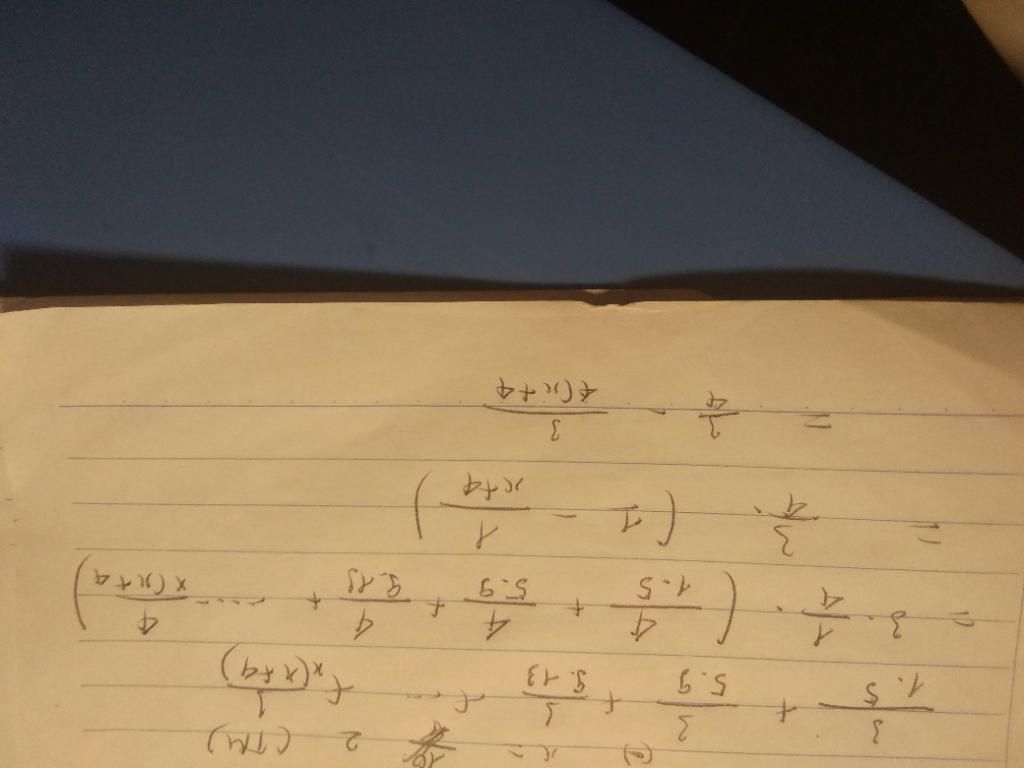 (=) x = 2 (TM)
3/1.5 + 3/5.9 + 3/9.13 + ... + 3/x(x+4)
= 3 . 1/4 . ( 4/1.5 + 4/5.9 + 4/9.13 + .... 4/x(x+4 )
= 3/4 . ( 1 - 1/x+4 )
= 3/4 - 3/4(x+4